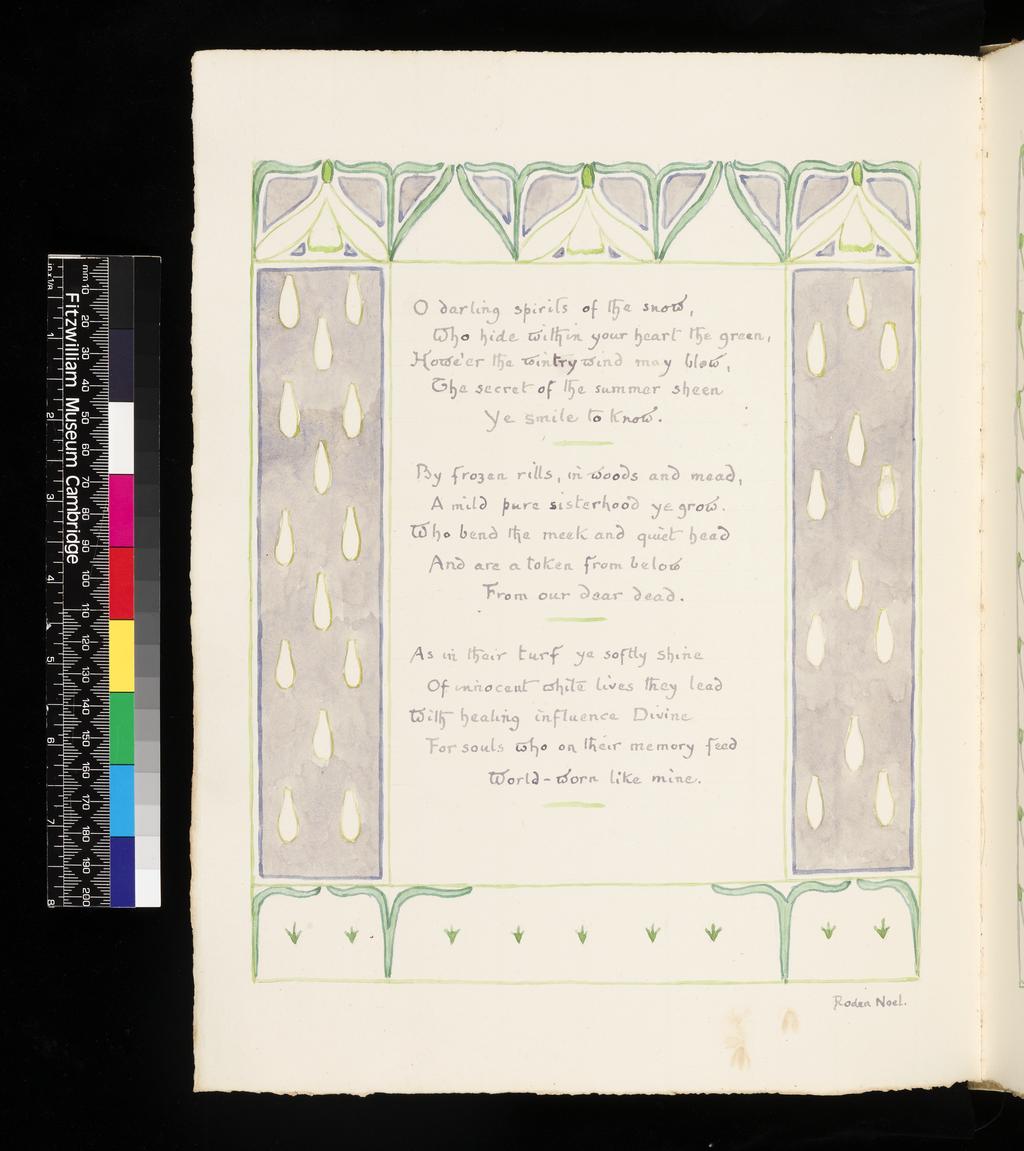 O darling spirits of the snow,
Who hide within your heart the green,
Howe'er the wintry wind may blow,
The secret of the summer sheen
Ye smile to know.
By frozen rills, in woods and mead,
A mild pure sisterhood ye grow.
Who bend the meek and quiet head
And are a token from below
From our dear dead.
As in their turf ye softly shine
Of innocent white lives they lead
With healing influence Divine
For souls who on their memory feed
World-worn like mine.
Roden Noel.
Fitzwilliam Museum Cambridge
mm 10 20 30 40 50 60 70 80 90 100 110 120 130 140 150 160 170 180 190 200
1 2 3 4 5 6 7 8